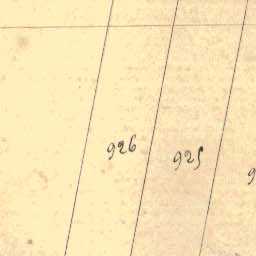 926
925
9